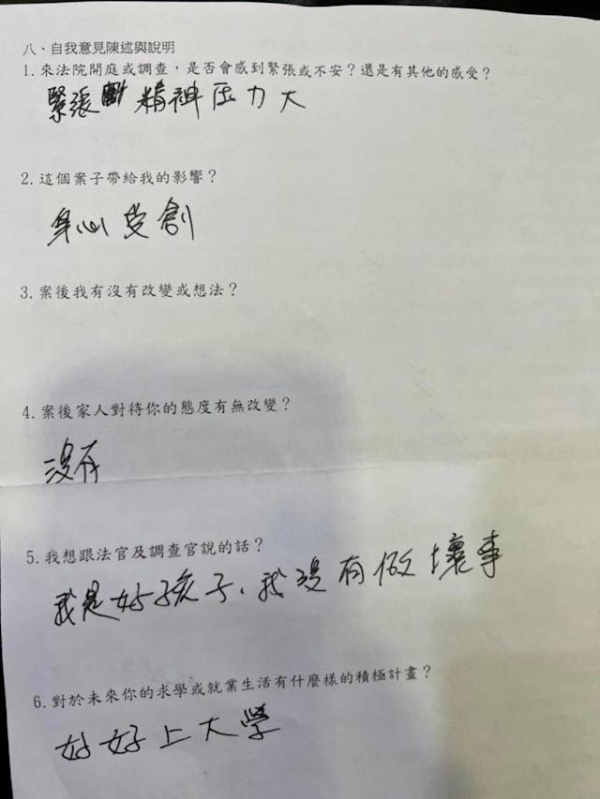 八、自我意見陳述與說明
1.來法院開庭或調查，是否會感到緊張或不安？還是有其他的感受？
緊張 精神压力大
2.這個案子帶給我的影響？
身心受創
3.案後我有沒有改變或想法？
4.案後家人對待你的態度有無改變？
沒有
5.我想跟法官及調查官說的話？
我是好孩子、我沒有做壞事
6.對於未來你的求學或就業生活有什麼樣的積極計畫？
好好上大學